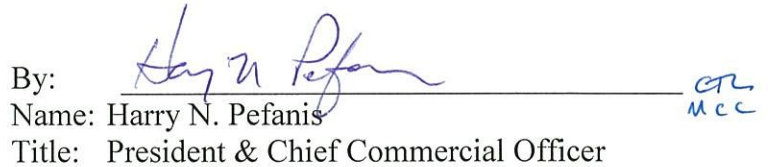 By: Harry N Pefanis
CTL
MCC
Name: Harry N. Pefanis
Title: President & Chief Commercial Officer